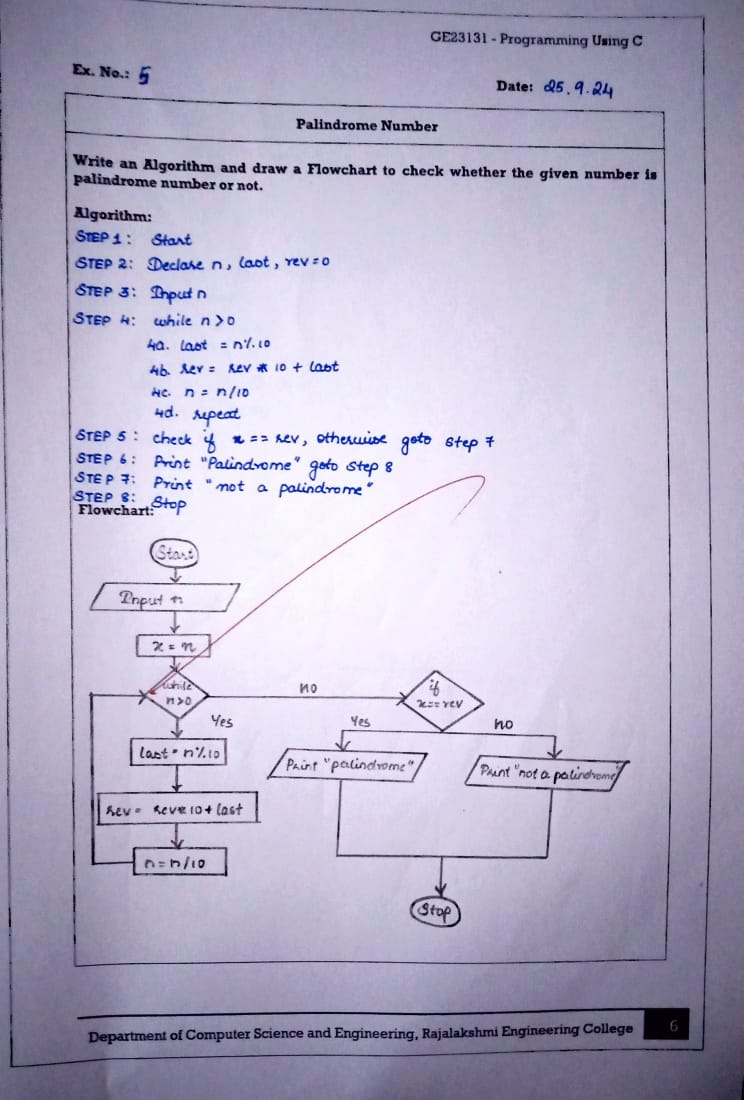 GE23131 - Programming Using C
Ex. No.: 5
Date: 25.9.24
Palindrome Number
Write an Algorithm and draw a Flowchart to check whether the given number is
palindrome number or not.
Algorithm:
STEP 1: Start
STEP 2: Declare n, last, rev=0
STEP 3: Input n
STEP 4: while n>0
4a. last = n%10
4b. rev = rev * 10 + last
4c. n = n/10
4d. repeat
STEP 5: check if x == rev, otherwise goto step 7
STEP 6: Print "Palindrome" goto step 8
STEP 7: Print "not a palindrome"
STEP 8: Stop
Flowchart:
Start
Input n
x = n
while
n>0
no
if
x==rev
Yes
Yes
no
last = n%10
Print "palindrome"
Print "not a palindrome"
rev = rev*10+last
n=n/10
Stop
Department of Computer Science and Engineering, Rajalakshmi Engineering College
6